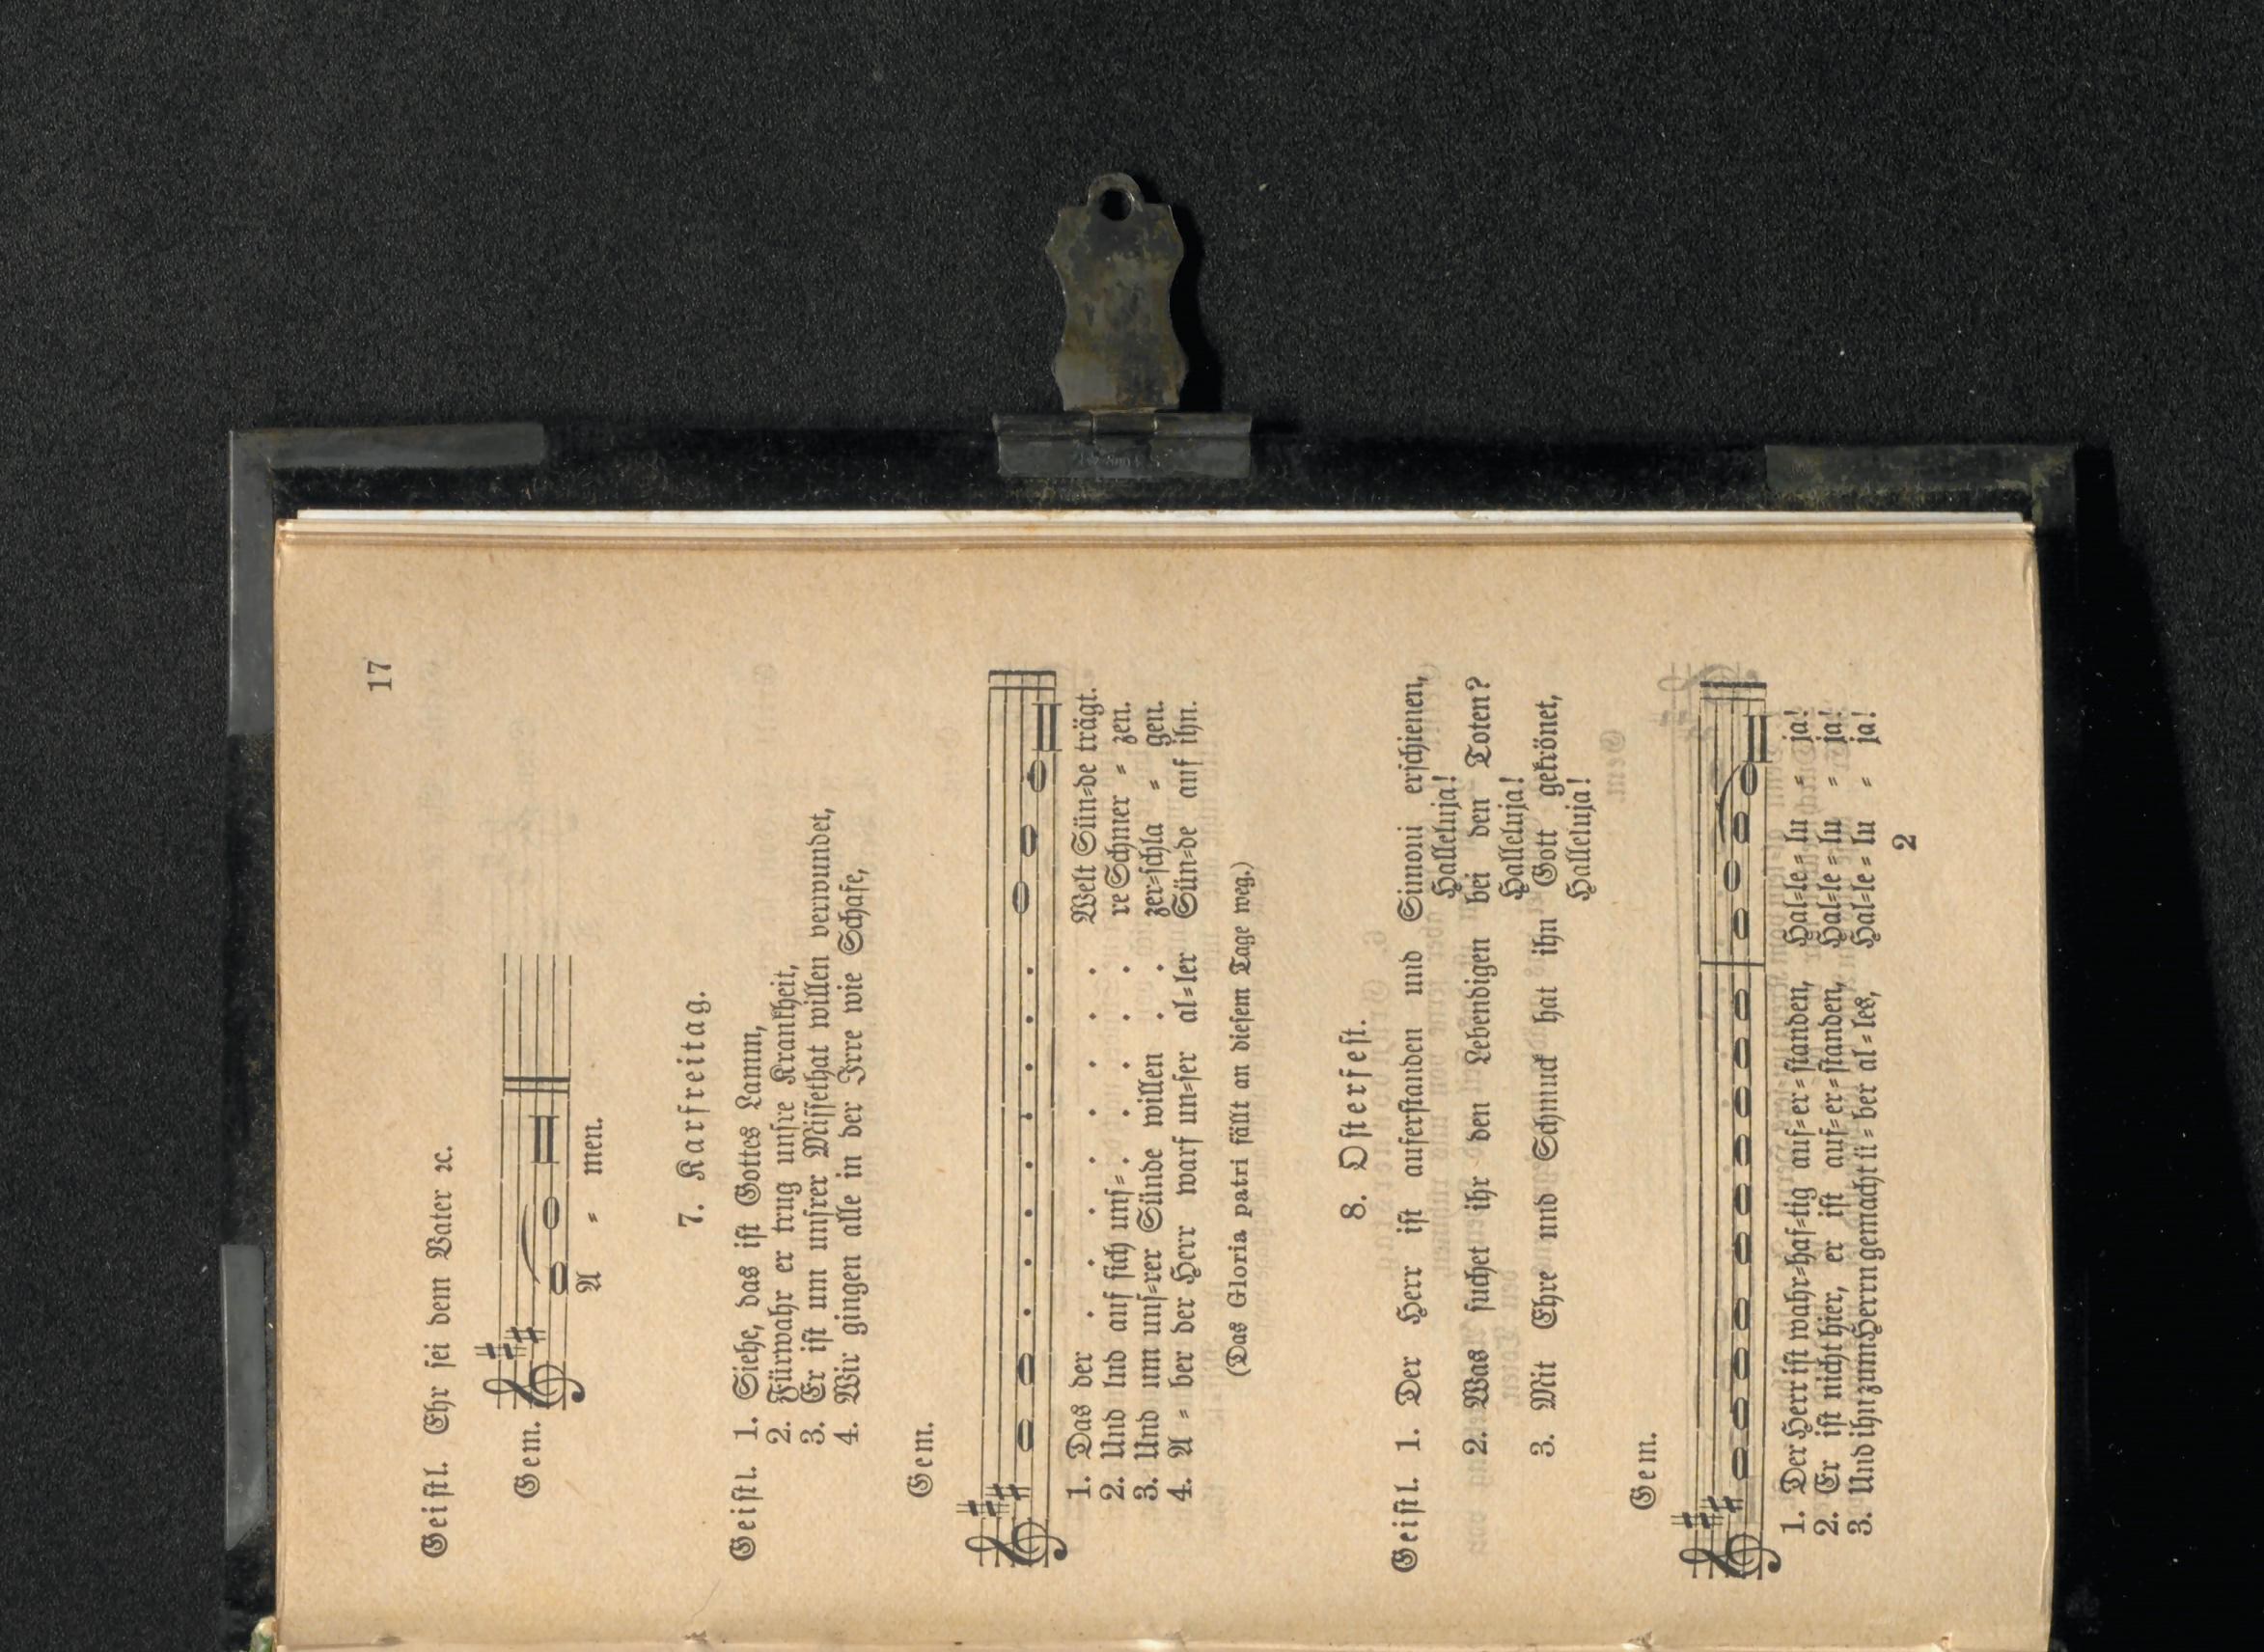 17
Geistl. Ehr sei dem Vater ꝛc.
Gem.
A = men.
7. Karfreitag.
Geistl. 1. Siehe, das ist Gottes Lamm,
2. Fürwahr er trug unsre Krankheit,
3. Er ist um unsrer Missethat willen verwundet,
4. Wir gingen alle in der Irre wie Schafe,
Gem.
1. Das der . . . . . . . . Welt Sün=de trägt.
2. Und lud auf sich uns= . . . . . re Schmer = zen.
3. Und um uns=rer Sünde willen . . zer=schla = gen.
4. A = ber der Herr warf un=ser al=ler Sün=de auf ihn.
(Das Gloria patri fällt an diesem Tage weg.)
8. Osterfest.
Geistl. 1. Der Herr ist auferstanden und Simoni erschienen,
Halleluja!
2. Was suchet ihr den Lebendigen bei den Toten?
Halleluja!
3. Mit Ehre und Schmuck hat ihn Gott gekrönet,
Halleluja!
Gem.
1. Der Herr ist wahr=haf=tig auf=er=standen, Hal=le=lu = ja!
2. Er ist nicht hier, er ist auf=er=standen, Hal=le=lu = ja!
3. Und ihn zum Herrn gemacht ü=ber al=les, Hal=le=lu = ja!
2